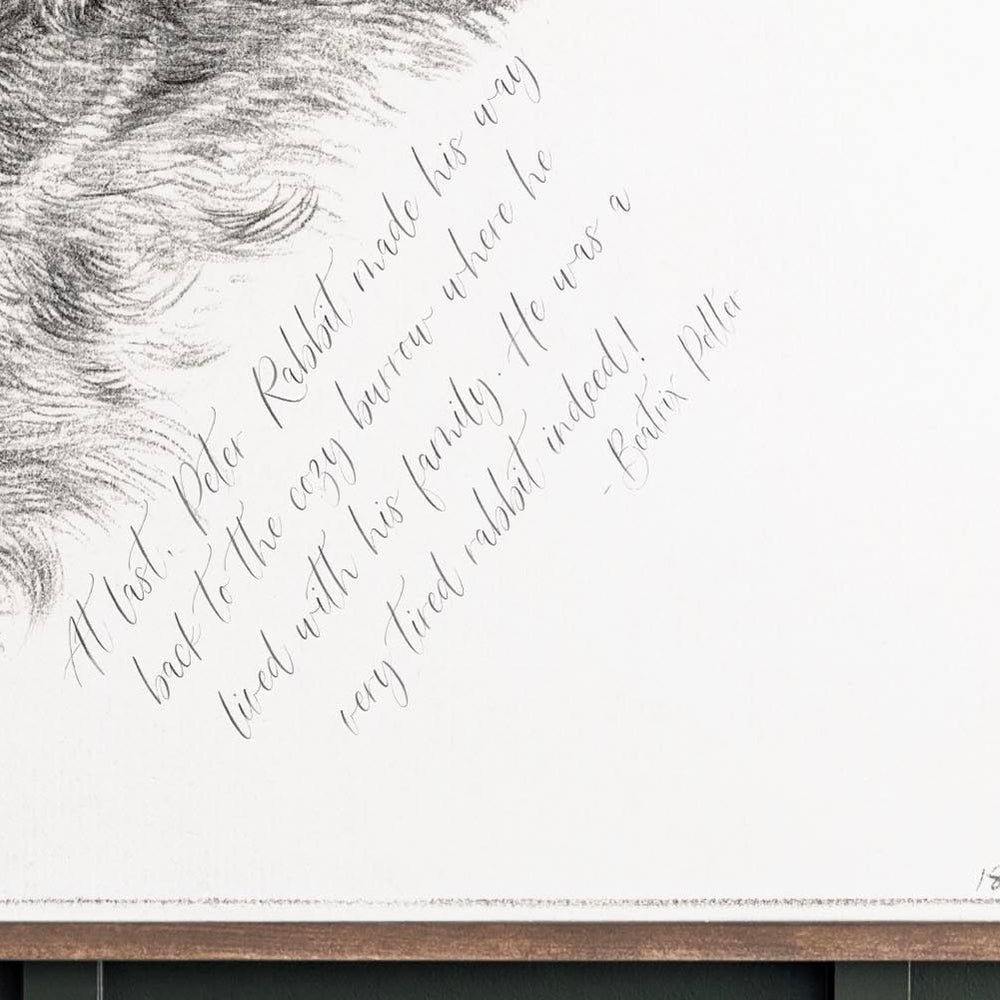 At last, Peter Rabbit made his way
back to the cozy burrow where he
lived with his family. He was a
very tired rabbit indeed!
-Beatrix Potter
18